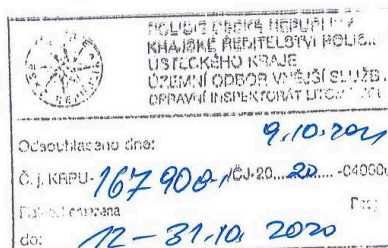 POLICIE ČESKÉ REPUBLIKY
KRAJSKÉ ŘEDITELSTVÍ POLICIE
ÚSTECKÉHO KRAJE
ÚZEMNÍ ODBOR VNĚJŠÍ SLUŽBY
DOPRAVNÍ INSPEKTORÁT
Odsouhlaseno dne: 9.10.
Č. j. KRPU- 167908-1/ČJ-20 20 -04060
do: 12-31.10. 2020